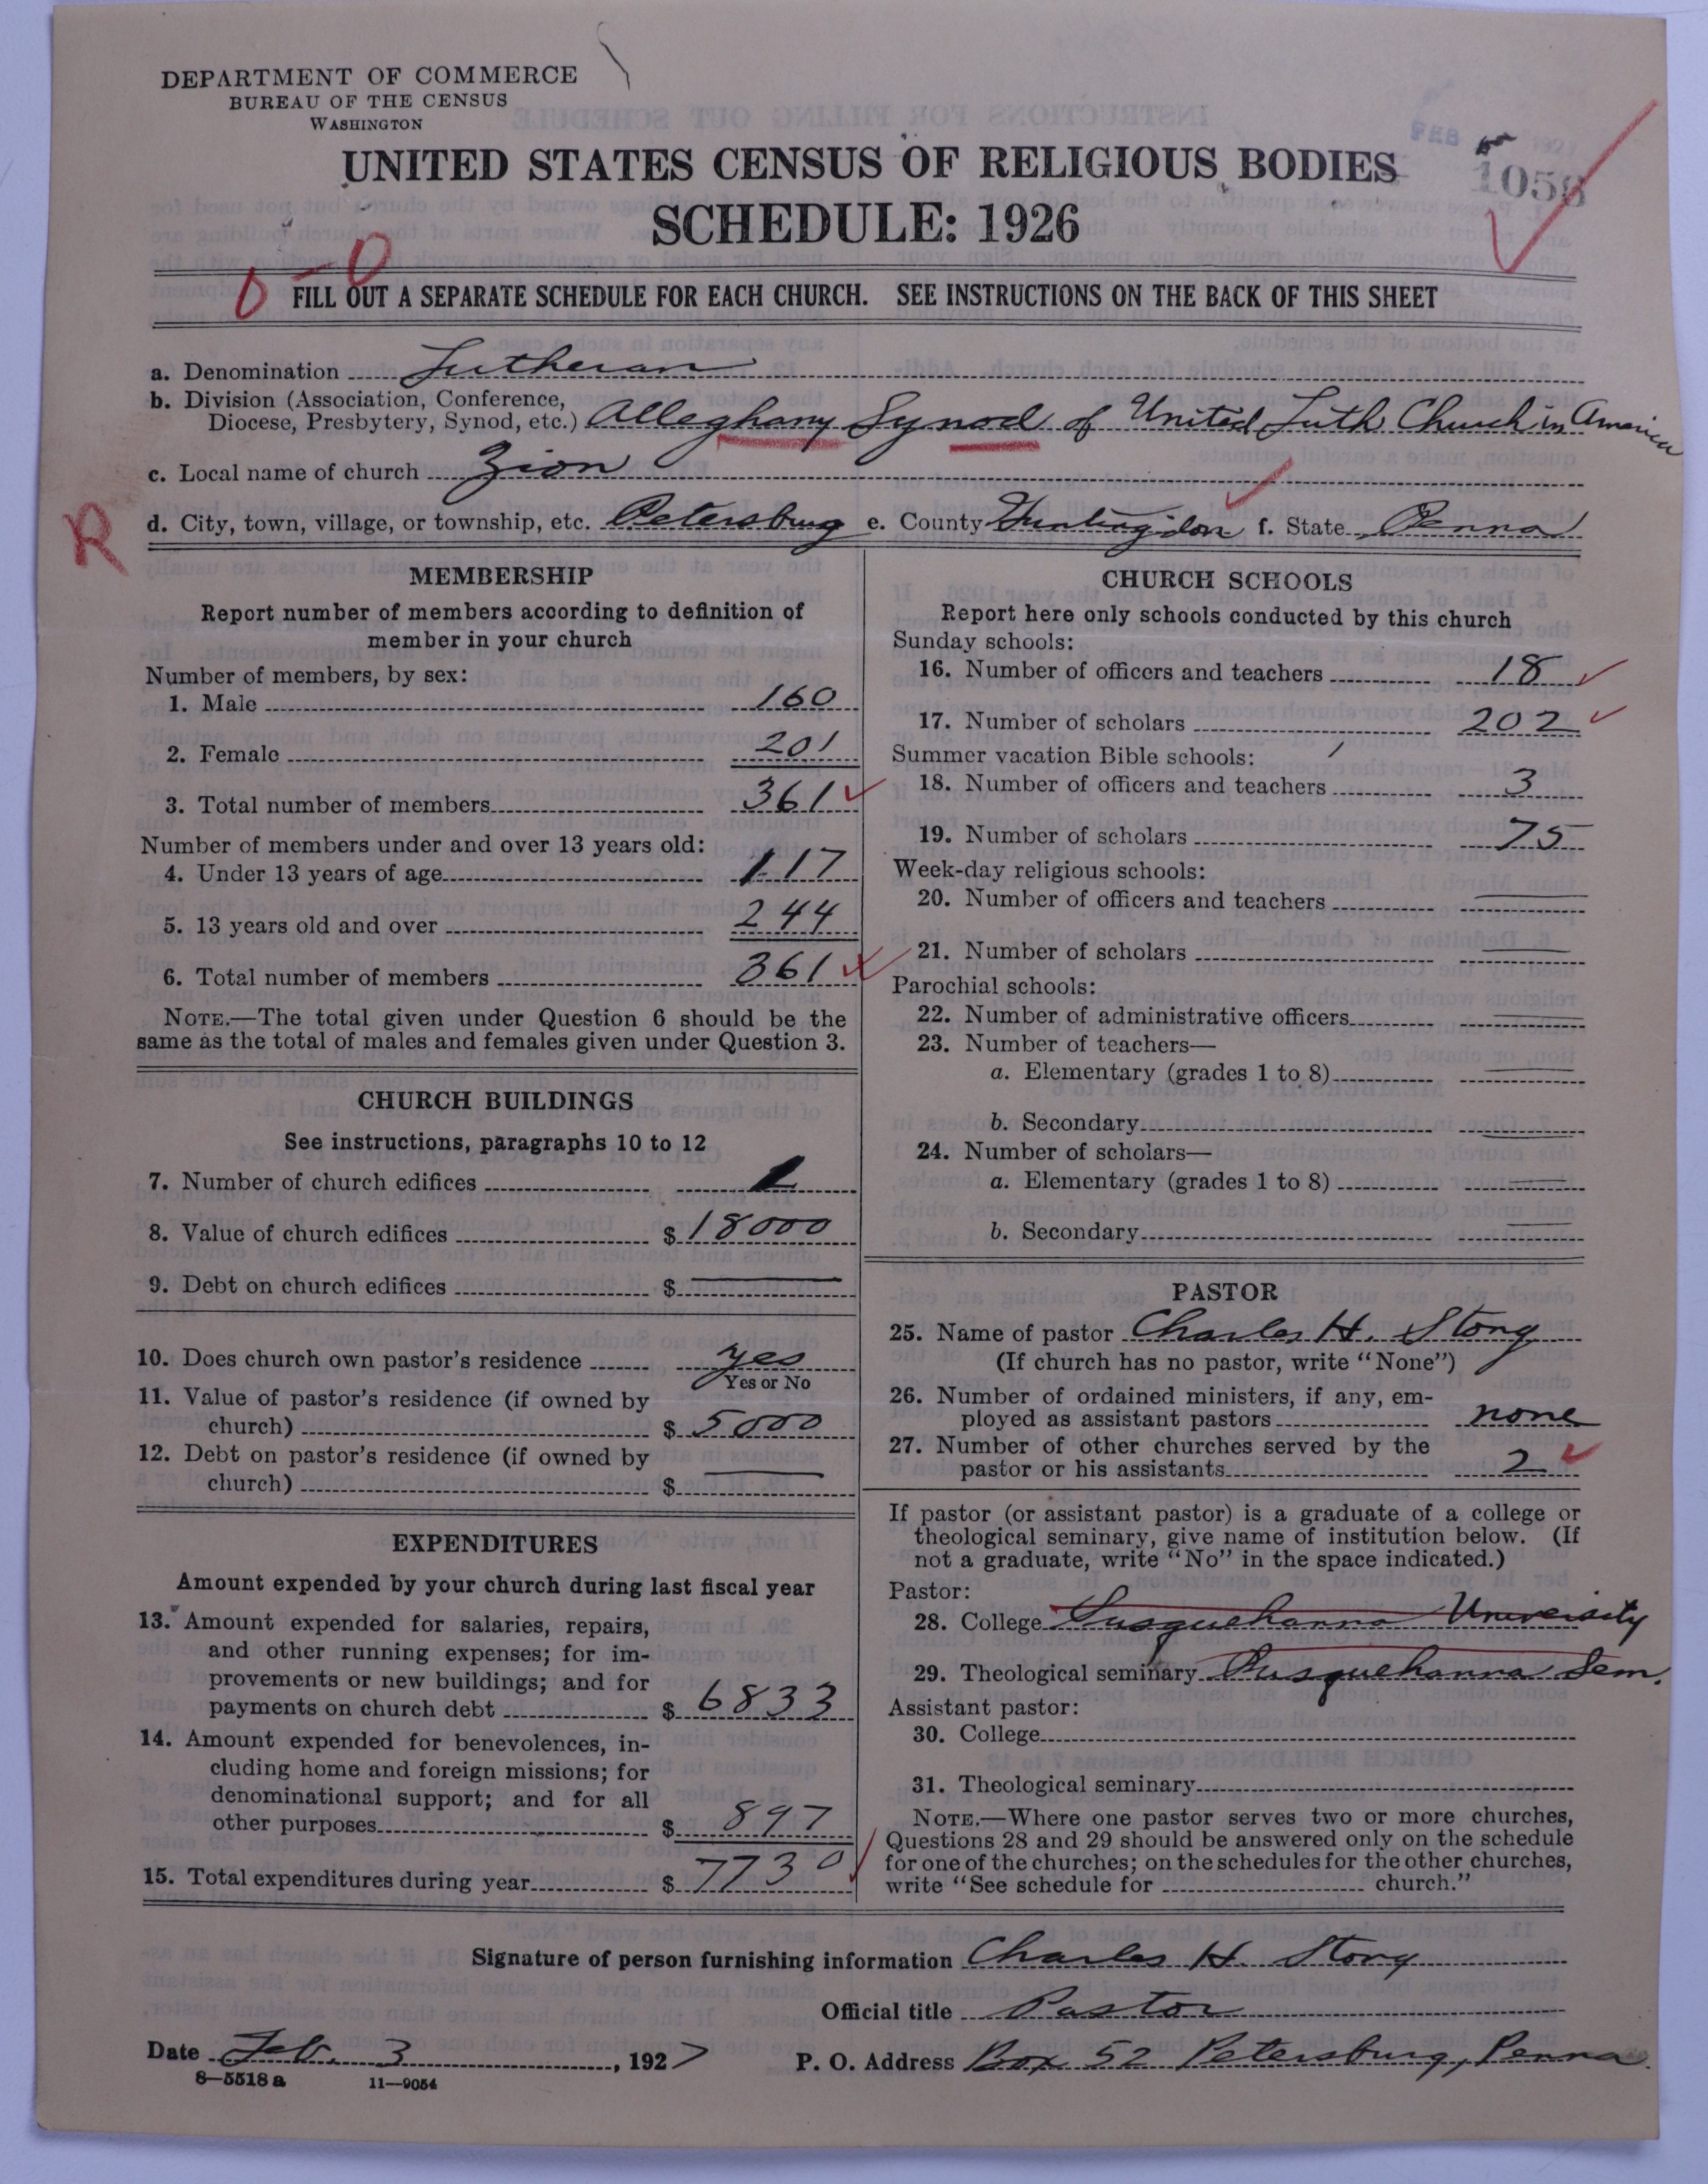 DEPARTMENT OF COMMERCE
BUREAU OF THE CENSUS
WASHINGTON
UNITED STATES CENSUS OF RELIGIOUS BODIES
SCHEDULE: 1926
FILL OUT A SEPARATE SCHEDULE FOR EACH CHURCH. SEE INSTRUCTIONS ON THE BACK OF THIS SHEET
a. Denomination Lutheran
b. Division (Association, Conference,
Diocese, Presbytery, Synod, etc.) Alleghany Synod of United Luth Church in America
c. Local name of church Zion
R
d. City, town, village, or township, etc. Petersburg e. County Huntingdon f. State Penna
MEMBERSHIP
Report number of members according to definition of
member in your church
Number of members, by sex:
1. Male 160
2. Female 201
3. Total number of members 361
Number of members under and over 13 years old:
4. Under 13 years of age 117
5. 13 years old and over 244
6. Total number of members 361
NOTE.—The total given under Question 6 should be the
same as the total of males and females given under Question 3.
CHURCH BUILDINGS
See instructions, paragraphs 10 to 12
7. Number of church edifices 1
8. Value of church edifices $ 18000
9. Debt on church edifices $ —
10. Does church own pastor's residence yes
Yes or No
11. Value of pastor's residence (if owned by
church) $ 5000
12. Debt on pastor's residence (if owned by
church) $ —
EXPENDITURES
Amount expended by your church during last fiscal year
13. Amount expended for salaries, repairs,
and other running expenses; for im-
provements or new buildings; and for
payments on church debt $ 6833
14. Amount expended for benevolences, in-
cluding home and foreign missions; for
denominational support; and for all
other purposes $ 897
15. Total expenditures during year $ 7730
CHURCH SCHOOLS
Report here only schools conducted by this church
Sunday schools:
16. Number of officers and teachers 18
17. Number of scholars 202
Summer vacation Bible schools:
18. Number of officers and teachers 3
19. Number of scholars 75
Week-day religious schools:
20. Number of officers and teachers —
21. Number of scholars —
Parochial schools:
22. Number of administrative officers —
23. Number of teachers—
a. Elementary (grades 1 to 8) —
b. Secondary —
24. Number of scholars—
a. Elementary (grades 1 to 8) —
b. Secondary —
PASTOR
25. Name of pastor Charles H. Stong
(If church has no pastor, write "None")
26. Number of ordained ministers, if any, em-
ployed as assistant pastors none
27. Number of other churches served by the
pastor or his assistants 2
If pastor (or assistant pastor) is a graduate of a college or
theological seminary, give name of institution below. (If
not a graduate, write "No" in the space indicated.)
Pastor:
28. College Susquehanna University
29. Theological seminary Susquehanna Sem.
Assistant pastor:
30. College
31. Theological seminary
NOTE.—Where one pastor serves two or more churches,
Questions 28 and 29 should be answered only on the schedule
for one of the churches; on the schedules for the other churches,
write "See schedule for church."
Signature of person furnishing information Charles H. Stong
Official title Pastor
Date Feb. 3, 1927 P. O. Address Box 52 Petersburg, Penna.
8—5518 a 11—9054